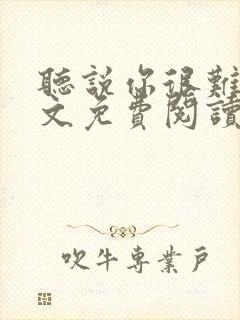 聽說你很難
文免費閱讀
吹牛專業戶